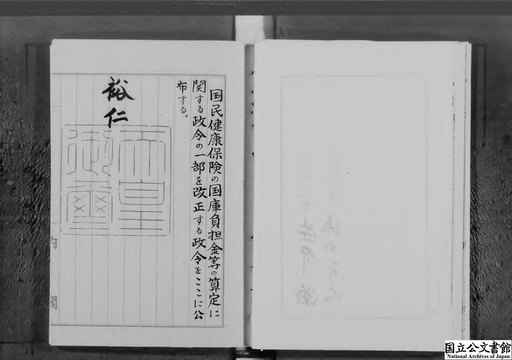 国民健康保険の国庫負担金等の算定に
関する政令の一部を改正する政令をここに公
布する。
裕仁
天皇
御璽
国立公文書館
National Archives of Japan